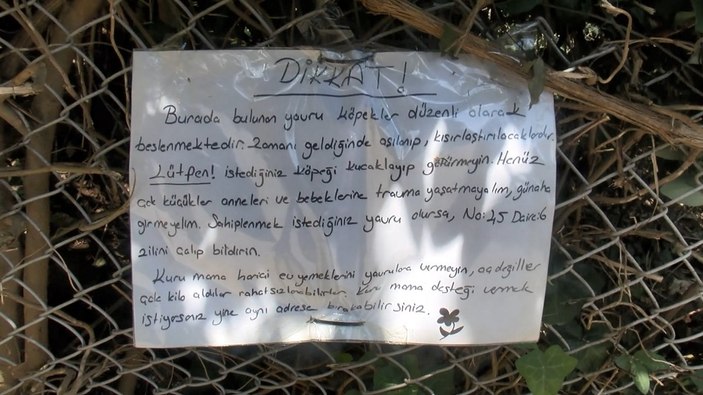 DİKKAT!
Burada bulunan yavru köpekler düzenli olarak
beslenmektedir. Zamanı geldiğinde aşılanıp, kısırlaştırılacaklardır.
Lütfen! istediğiniz köpeği kucaklayıp götürmeyin. Henüz
çok küçükler anneleri ve bebeklerine travma yaşatmayalım, günaha
girmeyelim. Sahiplenmek istediğiniz yavru olursa, No: 45 Daire: 6
zilini çalıp bildirin.
Kuru mama harici ev yemeklerini yavrulara vermeyin, aç değiller
çok kilo aldılar rahatsızlanabilirler. Kuru mama desteği vermek
istiyorsanız yine aynı adrese bırakabilirsiniz.